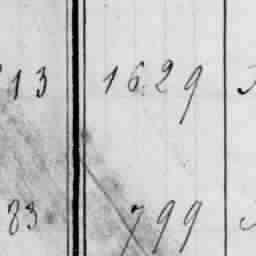 13 1629
83 799